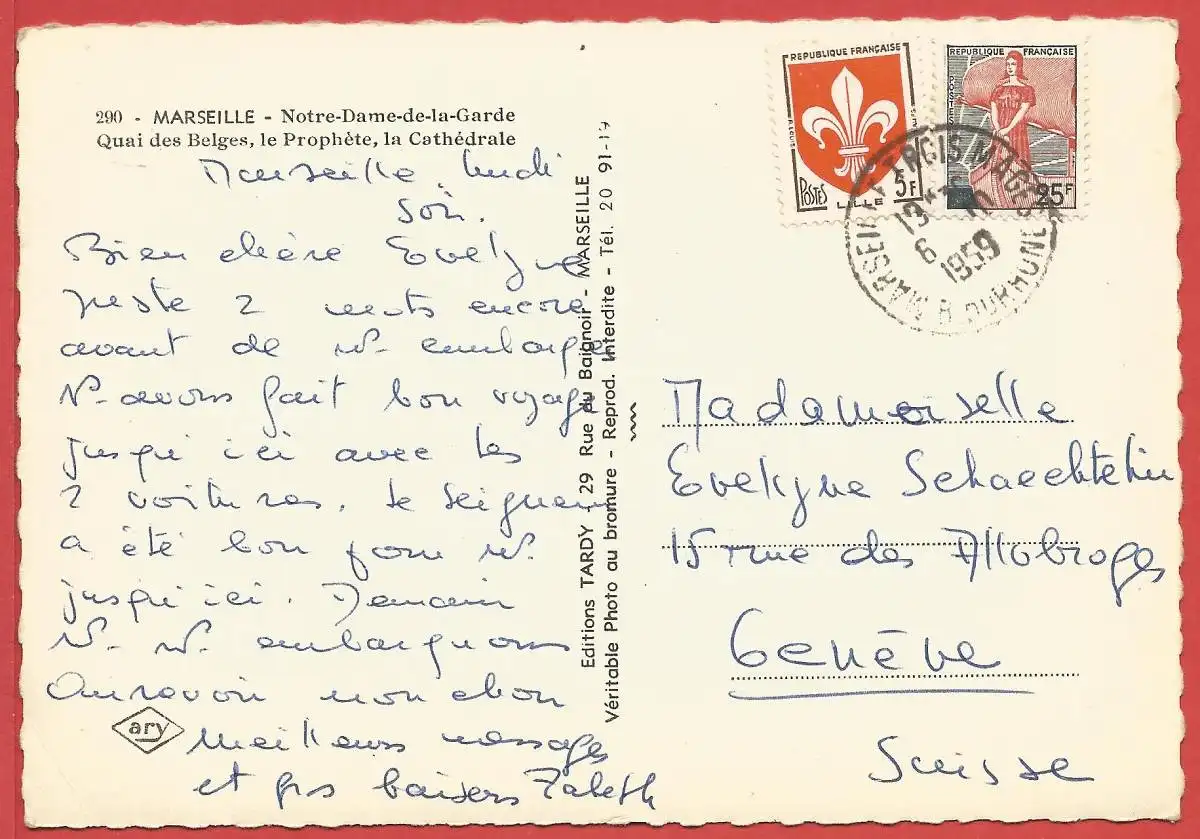 290 - MARSEILLE - Notre-Dame-de-la-Garde
Quai des Belges, le Prophète, la Cathédrale
Marseille, lundi
soir.
Bien chère Evelyne
juste 2 mots encore
avant de n. embarquer
N. avons fait bon voyage
jusqu'ici avec les
2 voitures. Le Seigneur
a été bon pour n.
jusqu'ici. Demain
n. n. embarquons
Au revoir mon
meilleurs messages
et gros baisers
ary
Editions TARDY - 29 Rue du Baignoir - MARSEILLE
Véritable Photo au bromure - Reprod. Interdite - Tél. 20 91-19
REPUBLIQUE FRANÇAISE
POSTES
LILLE
5F
REPUBLIQUE FRANÇAISE
POSTES
25F
MARSEILLE
6 10
1959
Mademoiselle
Evelyne
15 rue des Allobroges
Genève
Suisse